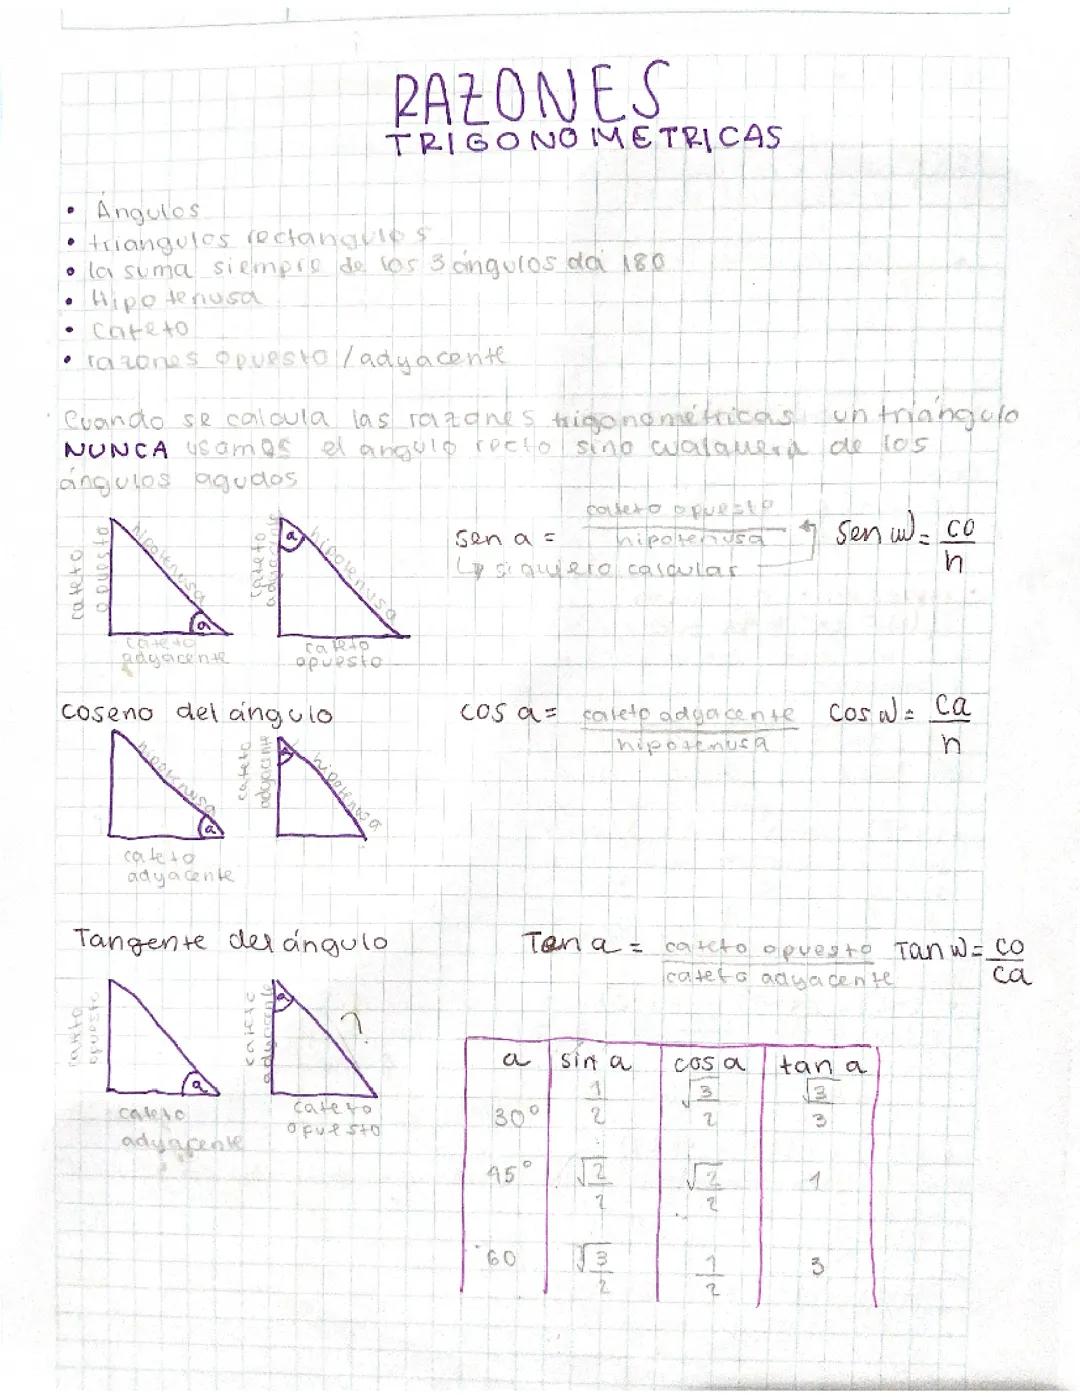 RAZONES
TRIGONOMETRICAS
• Ángulos
• triangulos rectangulos
• la suma siempre de los 3 ángulos da 180
• Hipotenusa
• Cateto
• razones opuesto / adyacente
Cuando se calcula las razones trigonométricas un triángulo
NUNCA usamos el angulo recto sino cualquiera de los
ángulos agudos
cateto opuesto
hipotenusa
a
cateto
adyacente
cateto
adyacente
hipotenusa
a
cateto
opuesto
sen a = cateto opuesto / hipotenusa
↳ si quiero calcular
sen w = co / h
coseno del ángulo
hipotenusa
a
cateto
adyacente
cateto
adyacente
hipotenusa
a
cos a = cateto adyacente / hipotenusa
cos w = ca / h
Tangente del ángulo
cateto
opuesto
a
cateto
adyacente
cateto
adyacente
a
?
cateto
opuesto
Tan a = cateto opuesto / cateto adyacente
Tan w = co / ca
a sin a cos a tan a
30° 1/2 √3/2 √3/3
45° √2/2 √2/2 1
60 √3/2 1/2 3